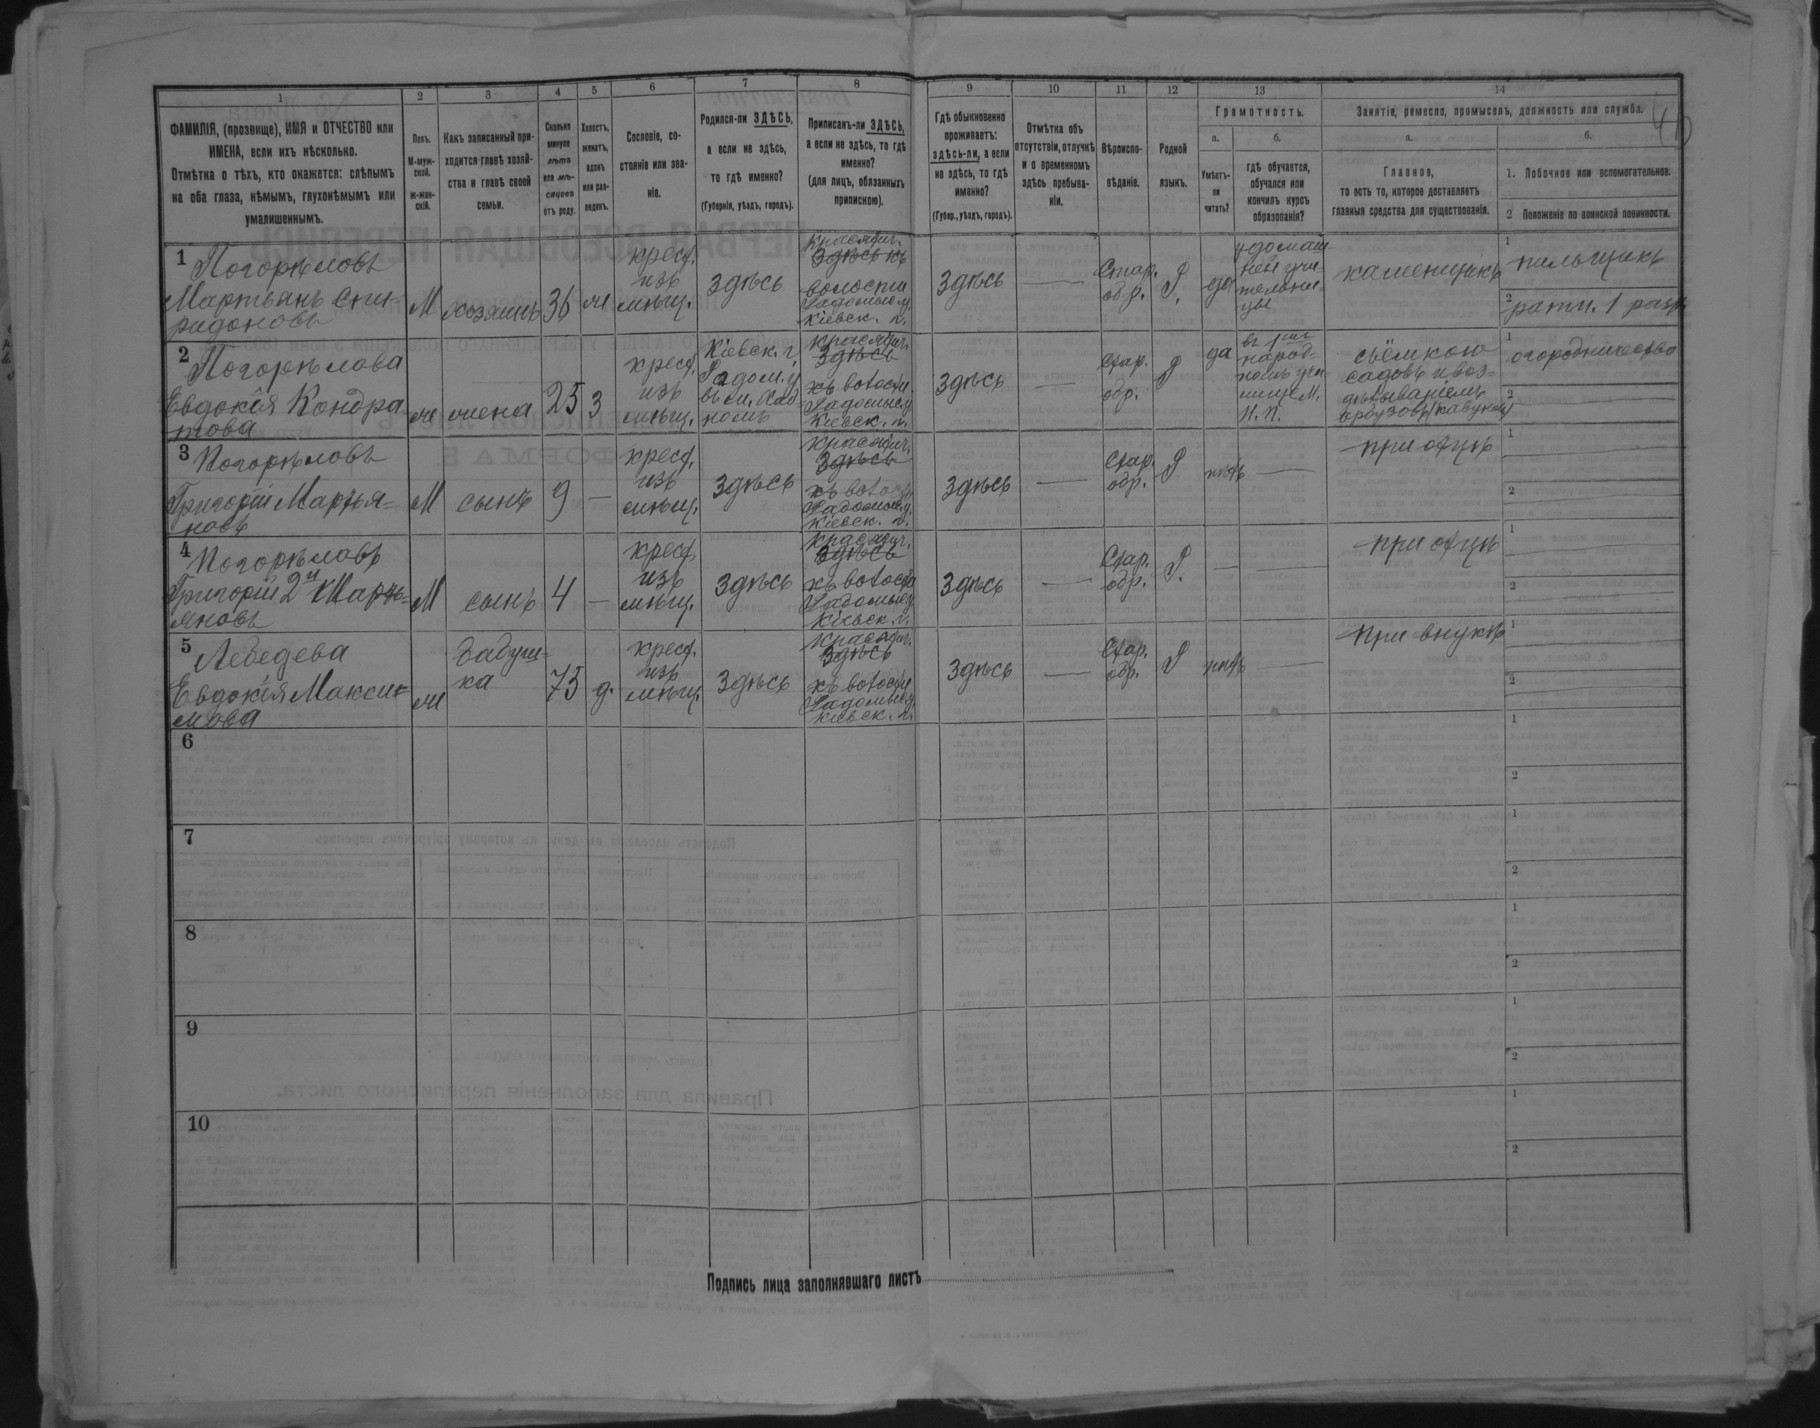 1
2
3
4
5
6
7
8
9
10
11
12
13
14
ФАМИЛІЯ, (прозвище), ИМЯ и ОТЧЕСТВО или
ИМЕНА, если ихъ нѣсколько.
Отмѣтка о тѣхъ, кто окажется: слѣпымъ
на оба глаза, нѣмымъ, глухонѣмымъ или
умалишеннымъ.
Полъ.
М-муж-
ской.
Ж-жен-
скій.
Какъ записанный при-
ходится главѣ хозяй-
ства и главѣ своей
семьи.
Сколько
минуло
лѣтъ
или мѣ-
сяцевъ
отъ роду.
Холостъ,
женатъ,
вдовъ
или раз-
веденъ.
Сословіе, со-
стояніе или зва-
ніе.
Родился-ли ЗДѢСЬ,
а если не здѣсь,
то гдѣ именно?
(Губернія, уѣздъ, городъ).
Приписанъ-ли ЗДѢСЬ,
а если не здѣсь, то гдѣ
именно?
(для лицъ, обязанныхъ
припискою).
Гдѣ обыкновенно
проживаетъ:
здѣсь-ли, а если
не здѣсь, то гдѣ
именно?
(Губер., уѣздъ, городъ).
Отмѣтка объ
отсутствіи, отлучкѣ
и о временномъ
здѣсь пребыва-
ніи.
Вѣроиспо-
вѣданіе.
Родной
языкъ.
Грамотность.
а.
Умѣетъ-
ли
читать?
б.
гдѣ обучается,
обучался или
кончилъ курсъ
образованія?
Занятіе, ремесло, промыселъ, должность или служба.
а.
Главное,
то есть то, которое доставляетъ
главныя средства для существованія.
б.
1. Побочное или вспомогательное.
2 Положеніе по воинской повинности.
1 Погорѣловъ
Мартьянъ Спи-
ридоновъ
М
хозяинъ
36
ж
крест.
изъ
мѣщ.
здѣсь
Красятич.
Здѣсь къ
волости
Радомысл.у.
Кіевск. г.
Здѣсь
Стар.
обр.
Р.
да
у домаш
ней учи
тельни
цы
каменщикъ
1 пильщикъ
2 ратн. 1 разр.
2 Погорѣлова
Евдокія Кондра
това
ж
жена
25
З
крест.
изъ
мѣщ.
Кіевск. г.
Радом. у.
Красятич.
Здѣсь
къ волости
Радомысл.у.
Кіевск. г.
Здѣсь
Стар.
обр.
Р
да
народ-
номъ учи
лищѣ М.
Н. П.
съёмкою
садовъ и воз-
дѣлываніемъ
арбузовъ (кавуновъ)
1 огородничество
2
3 Погорѣловъ
Григорій Мартья-
новъ
М
сынъ
9
—
крест.
изъ
мѣщ.
здѣсь
Красятич.
Здѣсь
къ волости
Радомысл.у.
Кіевск. г.
Здѣсь
Стар.
обр.
Р
нѣтъ
при отцѣ
1
2
4 Погорѣловъ
Григорій 2й Марть-
яновъ
М
сынъ
4
—
крест.
изъ
мѣщ.
здѣсь
Красятич.
Здѣсь
къ волости
Радомысл.у.
Кіевск. г.
Здѣсь
Стар.
обр.
Р.
—
при отцѣ
1
2
5 Лебедева
Евдокія Макси-
мова
ж
Бабуш-
ка
75
д.
крест.
изъ
мѣщ.
Здѣсь
Красятич.
Здѣсь
къ волости
Радомысл.у.
Кіевск. г.
Здѣсь
Стар.
обр.
Р
нѣтъ
при внукѣ
1
2
6
1
2
7
1
2
8
1
2
9
1
2
10
1
2
Подпись лица заполнявшаго листъ